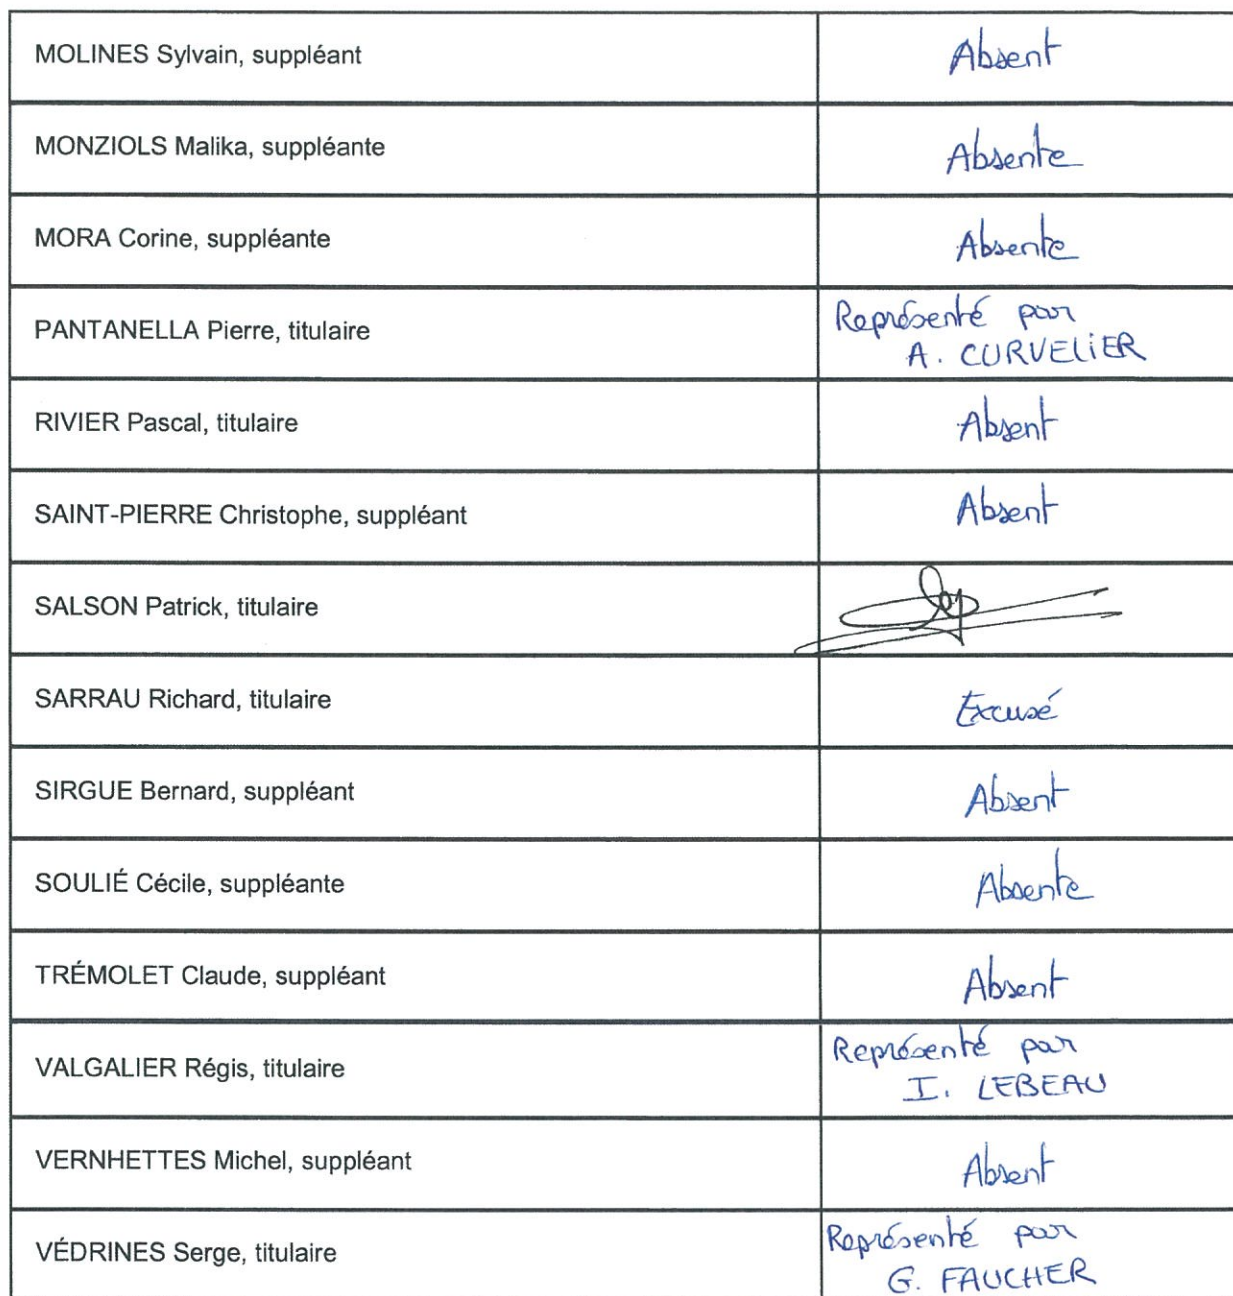 MOLINES Sylvain, suppléant
Absent
MONZIOLS Malika, suppléante
Absente
MORA Corine, suppléante
Absente
PANTANELLA Pierre, titulaire
Représenté par
A. CURVELIER
RIVIER Pascal, titulaire
Absent
SAINT-PIERRE Christophe, suppléant
Absent
SALSON Patrick, titulaire
SARRAU Richard, titulaire
Excusé
SIRGUE Bernard, suppléant
Absent
SOULIÉ Cécile, suppléante
Absente
TRÉMOLET Claude, suppléant
Absent
VALGALIER Régis, titulaire
Représenté par
I. LEBEAU
VERNHETTES Michel, suppléant
Absent
VÉDRINES Serge, titulaire
Représenté par
G. FAUCHER